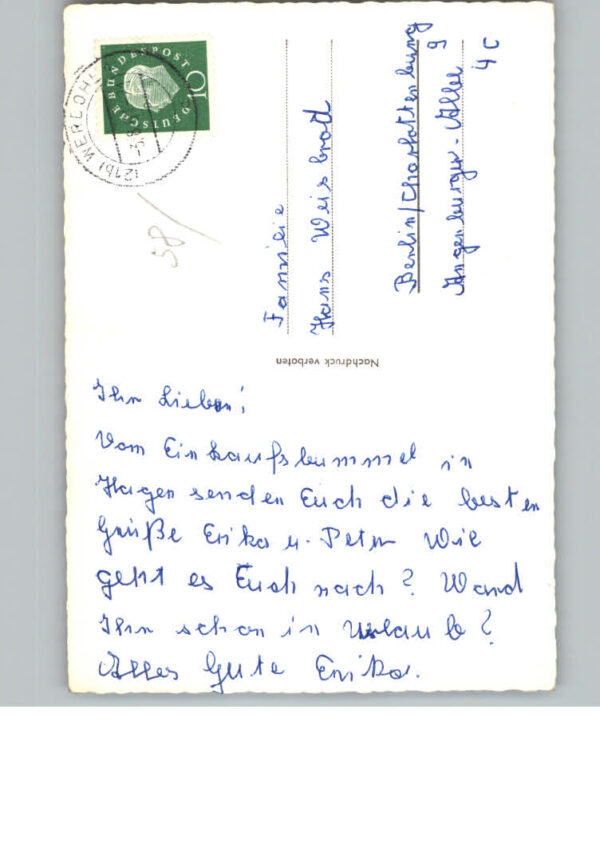 DEUTSCHE BUNDESPOST
10
(21b) WERDOHL
58
Familie
Hans Weisbrod
Berlin/Charlottenburg 9
Angerburger-Allee
4 C
Nachdruck verboten
Ihr Lieben!
Vom Einkaufsbummel in
Hagen senden Euch die besten
Grüße Erika u. Peter Wie
geht es Euch noch? Ward
Ihr schon in Urlaub?
Alles Gute Erika.